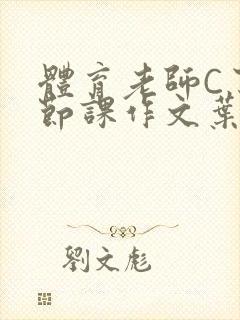 體育老師C
節課作文葉
劉文彪